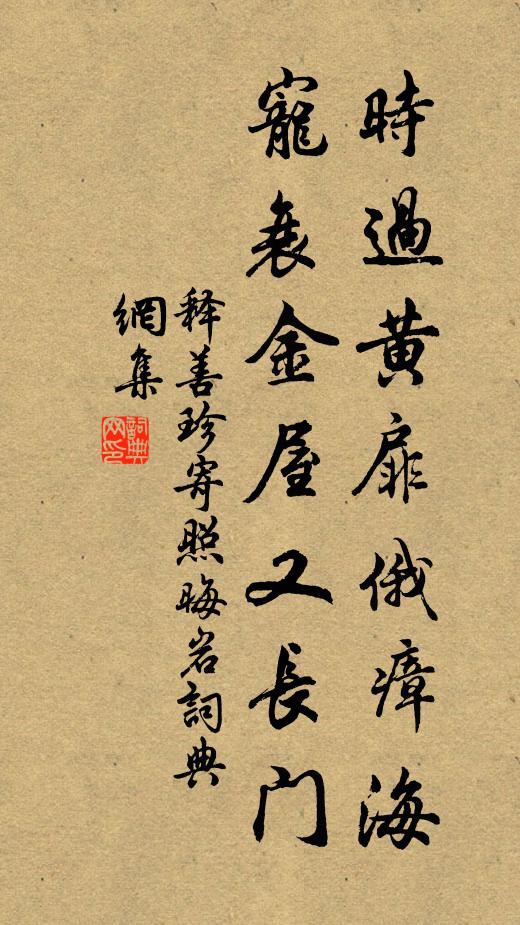 時過黃扉俄瘴海
寵衰金屋又長門
释善珍寄照晦岩詞典
網集
詞典网印